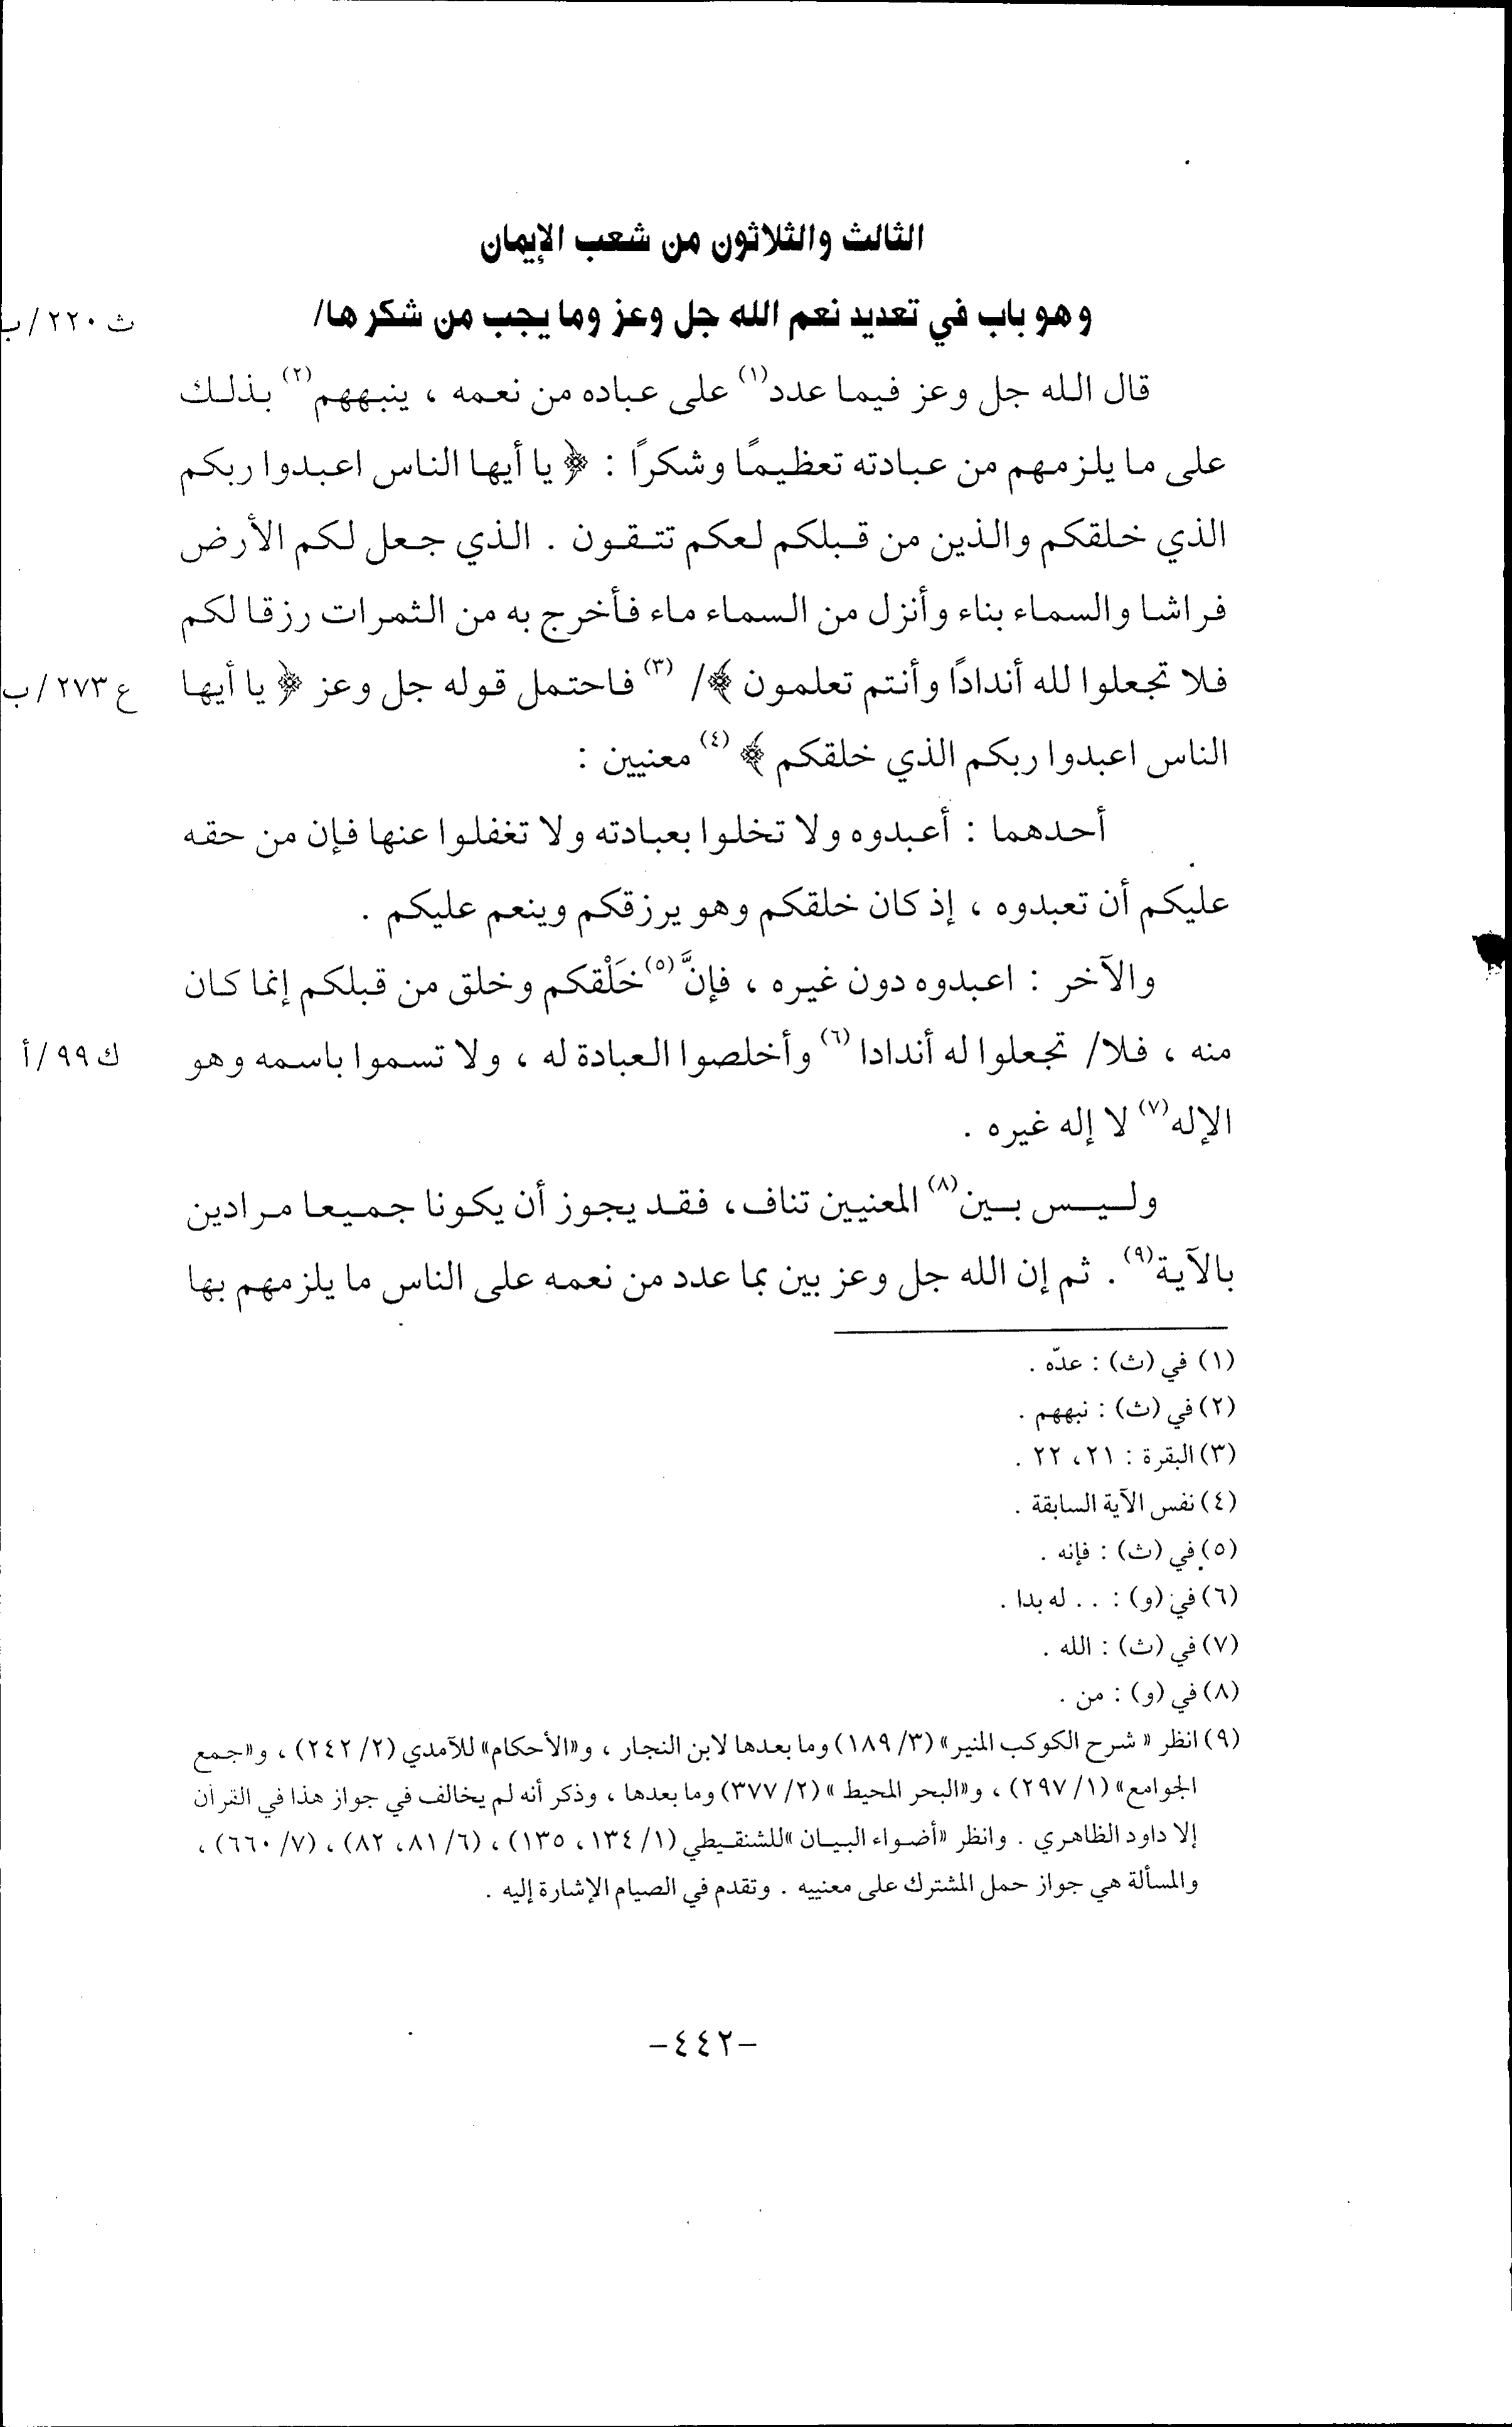 الثالث والثلاثون من شعب الإيمان
وهو باب في تعديد نعم الله جل وعز وما يجب من شكرها/
ث ٢٢٠/ب
قال الله جل وعز فيما عدد(١) على عباده من نعمه ، ينبههم(٢) بذلك
على ما يلزمهم من عبادته تعظيمًا وشكرًا : ﴿ يا أيها الناس اعبدوا ربكم
الذي خلقكم والذين من قبلكم لعكم تتقون . الذي جعل لكم الأرض
فراشا والسماء بناء وأنزل من السماء ماء فأخرج به من الثمرات رزقا لكم
فلا تجعلوا لله أندادًا وأنتم تعلمون ﴾/ (٣) فاحتمل قوله جل وعز ﴿ يا أيها
ع ٢٧٣/ب
الناس اعبدوا ربكم الذي خلقكم ﴾ (٤) معنيين :
أحدهما : أعبدوه ولا تخلوا بعبادته ولا تغفلوا عنها فإن من حقه
عليكم أن تعبدوه ، إذ كان خلقكم وهو يرزقكم وينعم عليكم .
والآخر : اعبدوه دون غيره ، فإنَّ(٥) خَلْقكم وخلق من قبلكم إنما كان
منه ، فلا/ تجعلوا له أندادا(٦) وأخلصوا العبادة له ، ولا تسموا باسمه وهو
ك ٩٩/أ
الإله(٧) لا إله غيره .
وليس بين(٨) المعنيين تناف، فقد يجوز أن يكونا جميعا مرادين
بالآية(٩) . ثم إن الله جل وعز بين بما عدد من نعمه على الناس ما يلزمهم بها
(١) في (ث) : عدّه .
(٢) في (ث) : نبههم .
(٣) البقرة : ٢١، ٢٢ .
(٤) نفس الآية السابقة .
(٥) في (ث) : فإنه .
(٦) في (و) : . . له بدا .
(٧) في (ث) : الله .
(٨) في (و) : من .
(٩) انظر « شرح الكوكب المنير» (٣/ ١٨٩) وما بعدها لابن النجار ، و«الأحكام» للآمدي (٢/ ٢٤٢) ، و«جمع
الجوامع» (١/ ٢٩٧) ، و«البحر المحيط » (٢/ ٣٧٧) وما بعدها ، وذكر أنه لم يخالف في جواز هذا في القرآن
إلا داود الظاهري . وانظر «أضواء البيان »للشنقيطي (١/ ١٣٤، ١٣٥) ، (٦/ ٨١، ٨٢) ، (٧/ ٦٦٠) ،
والمسألة هي جواز حمل المشترك على معنييه . وتقدم في الصيام الإشارة إليه .
-٤٤٢-